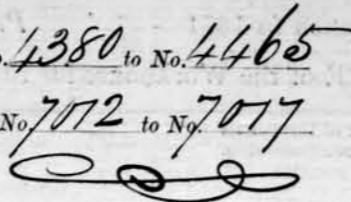 . 4380 to No. 4465
No. 7012 to No. 7017